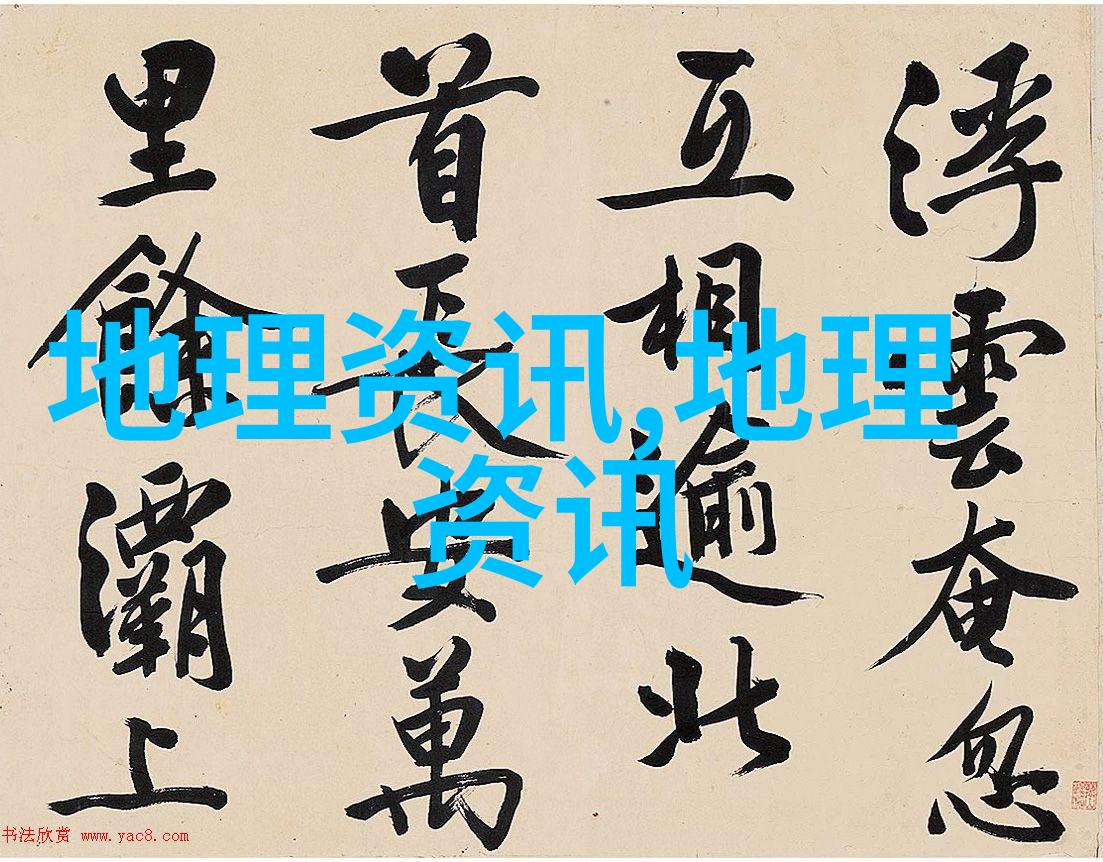 浮雲奄忽
互相逾北
首長安萬
里餘灞上
地理资讯,地理
资讯
书法欣赏 www.yac8.com